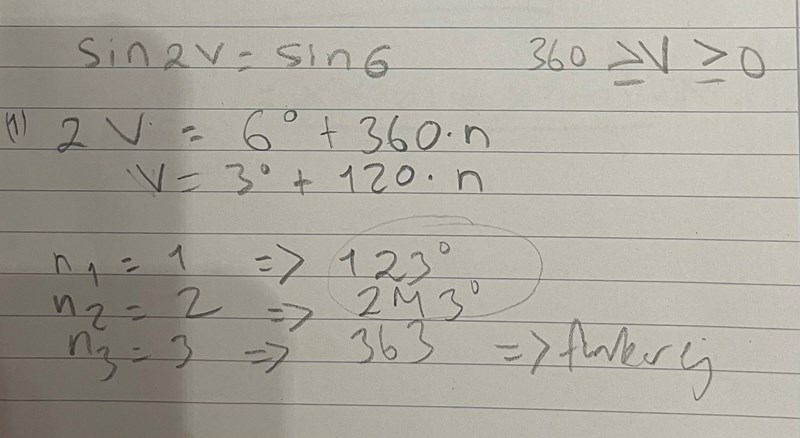 sin 2V = sin 6 360 ≥ V ≥ 0
(1) 2V = 6° + 360·n
V = 3° + 120·n
n₁ = 1 => 123°
n₂ = 2 => 243°
n₃ = 3 => 363 => funkar ej